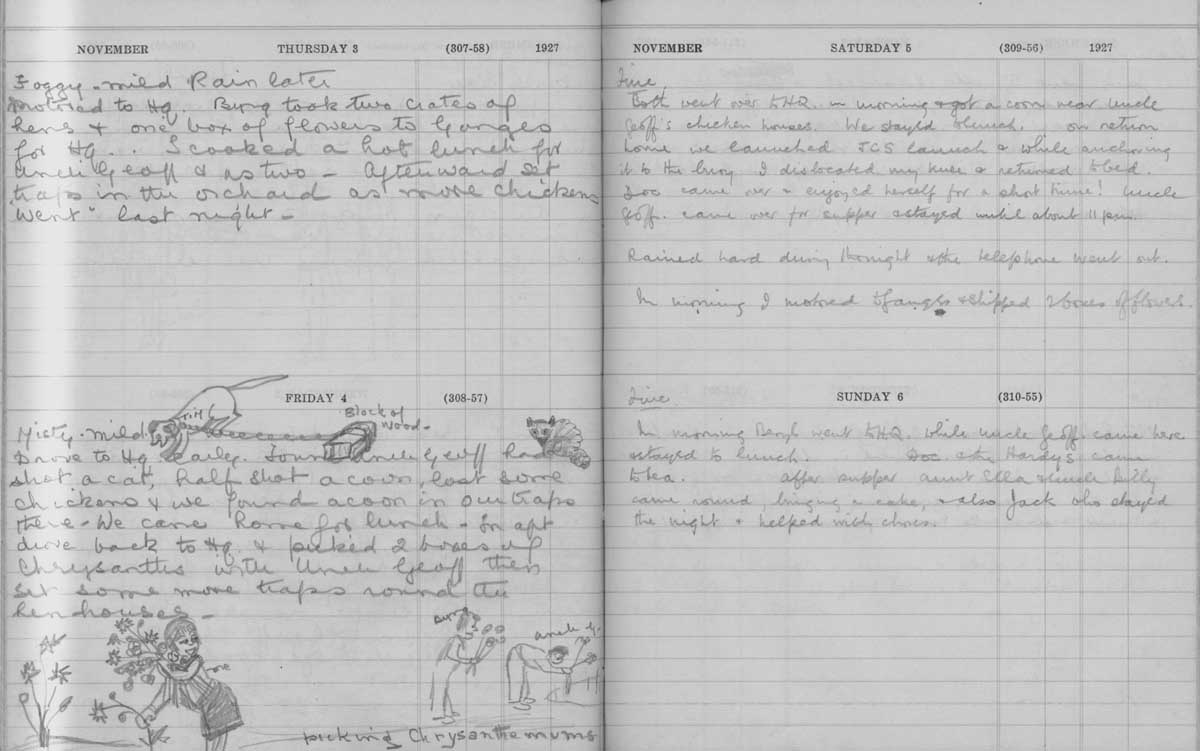 NOVEMBER THURSDAY 3 (307-58) 1927
Foggy - mild Rain later
Motored to Hq. Byng took two crates of
hens & one box of flowers to Ganges
for Hq.. I cooked a hot lunch for
Uncle Geoff & us two - Afterward set
traps in the orchard as more chickens
"went" last night -
FRIDAY 4 (308-57)
Block of
Wood -
Misty - mild
Drove to Hq early. Found Uncle Geoff had
shot a cat, half shot a coon, lost some
chickens & we found a coon in our traps
there - We came home for lunch - In aft
drove back to Hq & picked 2 boxes of
Chrysanths with Uncle Geoff then
set some more traps round the
hen houses -
Byng
me
Uncle G.
picking Chrysanthemums
NOVEMBER SATURDAY 5 (309-56) 1927
Fine
Both went over to HQ in morning & got a coon near Uncle
Geoff's chicken houses. We stayed to lunch. On return
home we launched JCS launch & while anchoring
it to the buoy I dislocated my knee & returned to bed.
Doc came over & enjoyed herself for a short time! Uncle
Geoff. came over for supper & stayed until about 11 pm.
Rained hard during the night & the telephone went out.
In morning I motored to Ganges & shipped 2 boxes of flowers.
SUNDAY 6 (310-55)
Fine.
In morning Beryl went to HQ. while Uncle Geoff. came here
& stayed to lunch. Doc & the Hardys came
to tea. After supper Aunt Ella & Uncle Billy
came round, bringing a cake, & also Jack who stayed
the night & helped with chores.